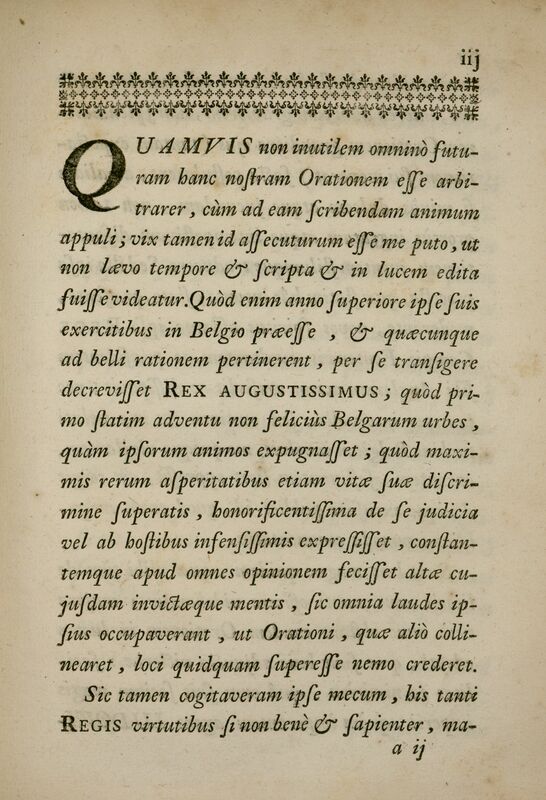 iij
QUAMVIS non inutilem omninò futu-
ram hanc noſtram Orationem eſſe arbi-
trarer, cùm ad eam ſcribendam animum
appuli; vix tamen id aſſecuturum eſſe me puto, ut
non lævo tempore & ſcripta & in lucem edita
fuiſſe videatur. Quòd enim anno ſuperiore ipſe ſuis
exercitibus in Belgio præeſſe, & quæcunque
ad belli rationem pertinerent, per ſe tranſigere
decreviſſet REX AUGUSTISSIMUS; quòd pri-
mo ſtatim adventu non feliciùs Belgarum urbes,
quàm ipſorum animos expugnaſſet; quòd maxi-
mis rerum aſperitatibus etiam vitæ ſuæ diſcri-
mine ſuperatis, honorificentiſſima de ſe judicia
vel ab hoſtibus infenſiſſimis expreſſiſſet, conſtan-
temque apud omnes opinionem feciſſet altæ cu-
juſdam invictæque mentis, ſic omnia laudes ip-
ſius occupaverant, ut Orationi, quæ aliò colli-
nearet, loci quidquam ſupereſſe nemo crederet.
Sic tamen cogitaveram ipſe mecum, his tanti
REGIS virtutibus ſi non benè & ſapienter, ma-
a ij